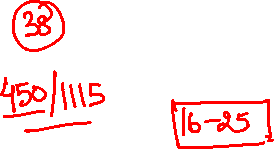 38
450/1115
16-25